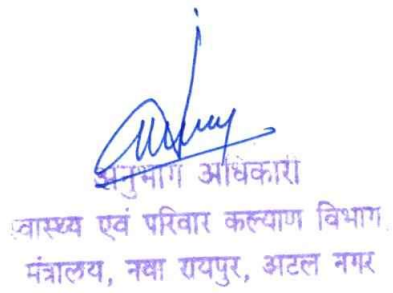 अनुभाग अधिकारी
स्वास्थ्य एवं परिवार कल्याण विभाग
मंत्रालय, नवा रायपुर, अटल नगर